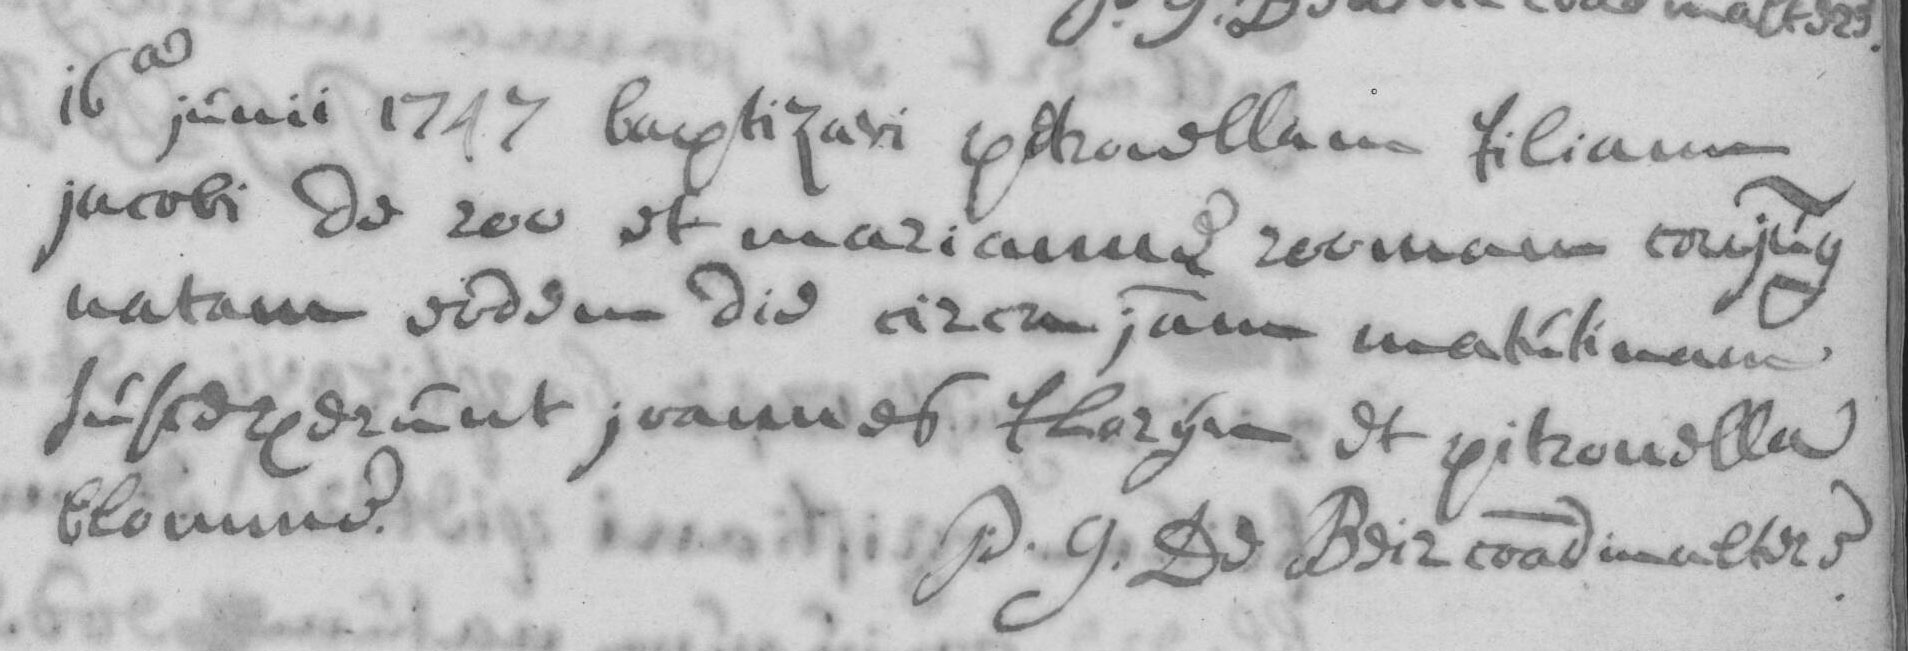 P. G. De Beir coad in altere.
16a junii 1747 baptizavi petronellam filiam
jacobi de roo et marianne rooman conjug
natam eodem die circa jam matutinam
susceperunt joannes floryn et pitronella
blomme.
P. G. De Beir coad in altere